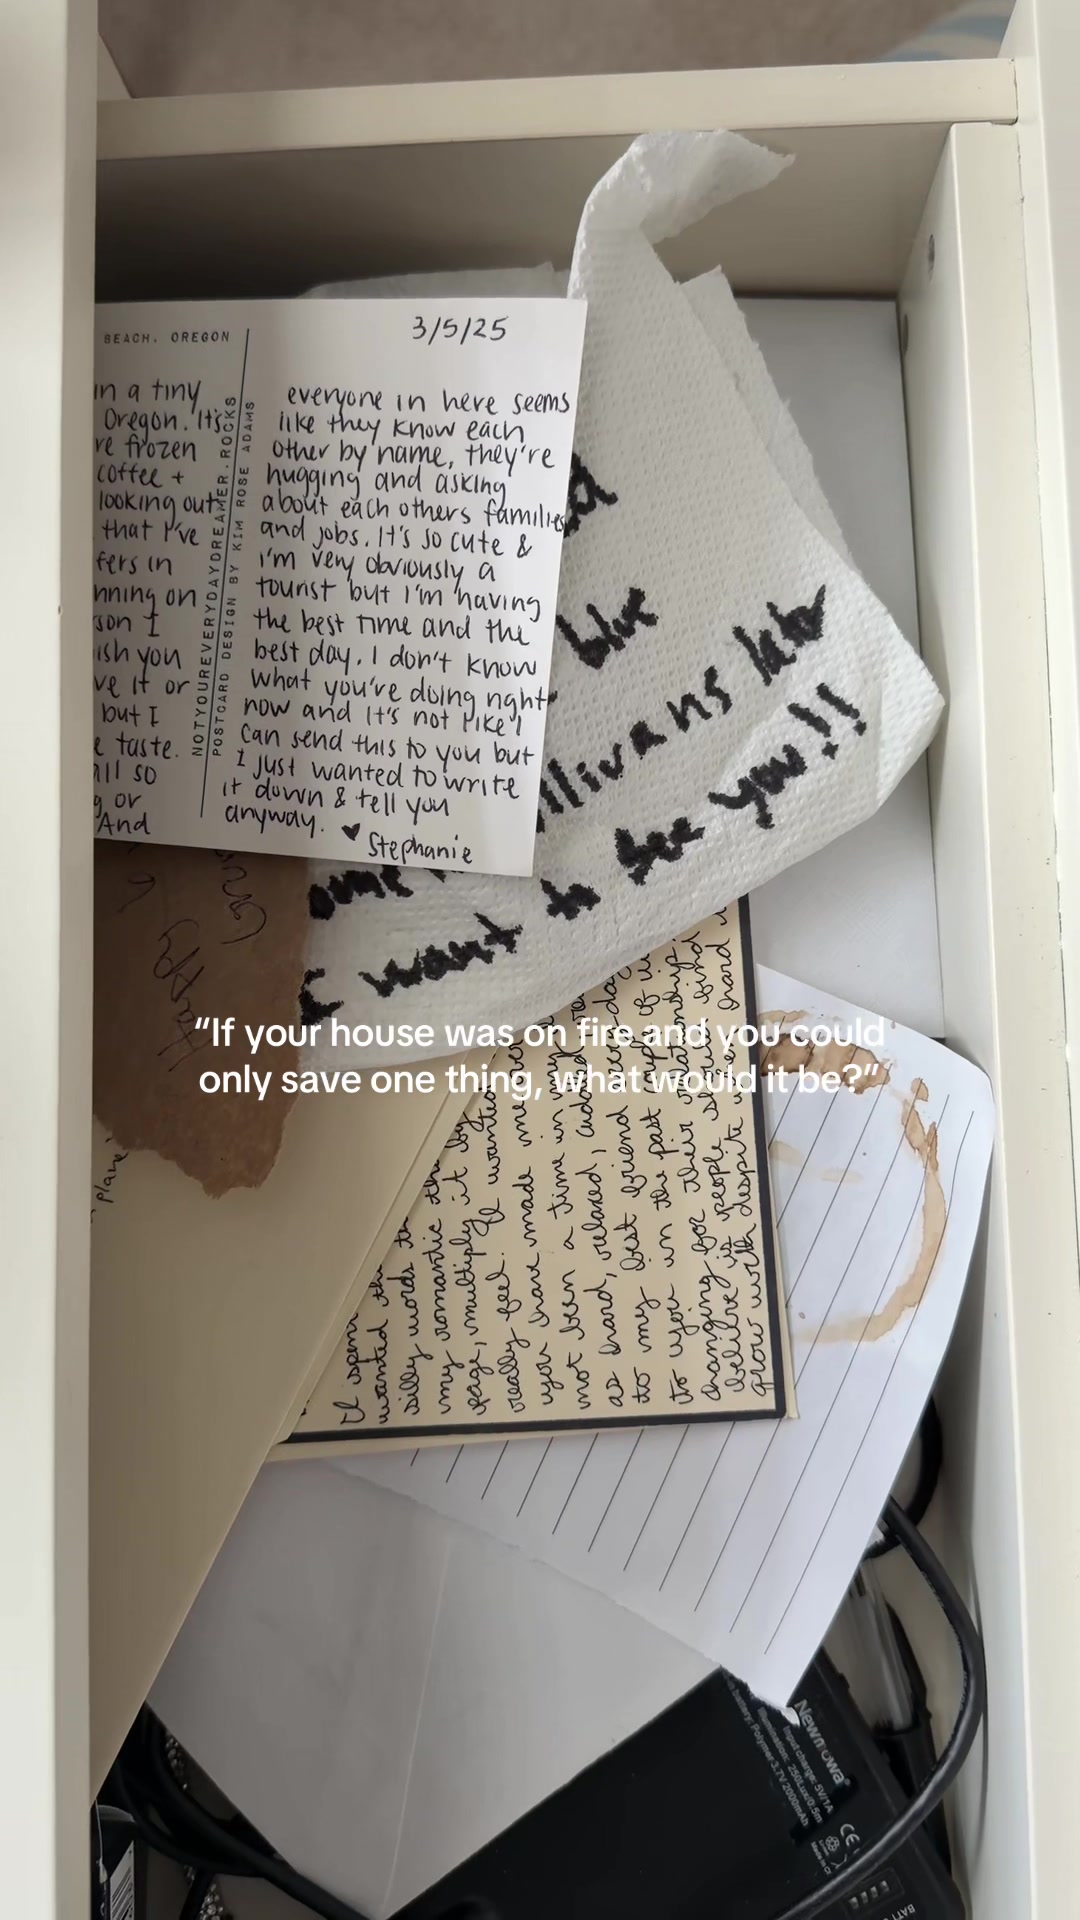 BEACH, OREGON
3/5/25
in a tiny
Oregon. It's
re frozen
coffee +
looking out
that I've
fers in
nning on
son I
ish you
ve it or
but I
e taste.
all so
g or
And
NOTYOUREVERYDAYDREAMER.ROCKS
POSTCARD DESIGN BY KIM ROSE ADAMS
everyone in here seems
like they know each
other by name, they're
hugging and asking
about each others families
and jobs. It's so cute &
i'm very obviously a
tourist but I'm having
the best time and the
best day. I don't know
what you're doing right
now and it's not like I
can send this to you but
I just wanted to write
it down & tell you
anyway. ♥
Stephanie
blue
llivans later
I want to see you!!
Happy
“If your house was on fire and you could
only save one thing, what would it be?”
place
I spent
wanted the
silly words
my romantic
page, multiply it by
really feel. I wanted
you have made me
not been a time in my
as hard, relaxed,
to my best friend
to you in the past
changing for their relationship
believe is people should find
grow with despite
Newmowa®
Input charge: 5V/1A
Illumination: 250Lux/0.5m
battery: Polymer 3.7V 2000mAh
CE
BATT